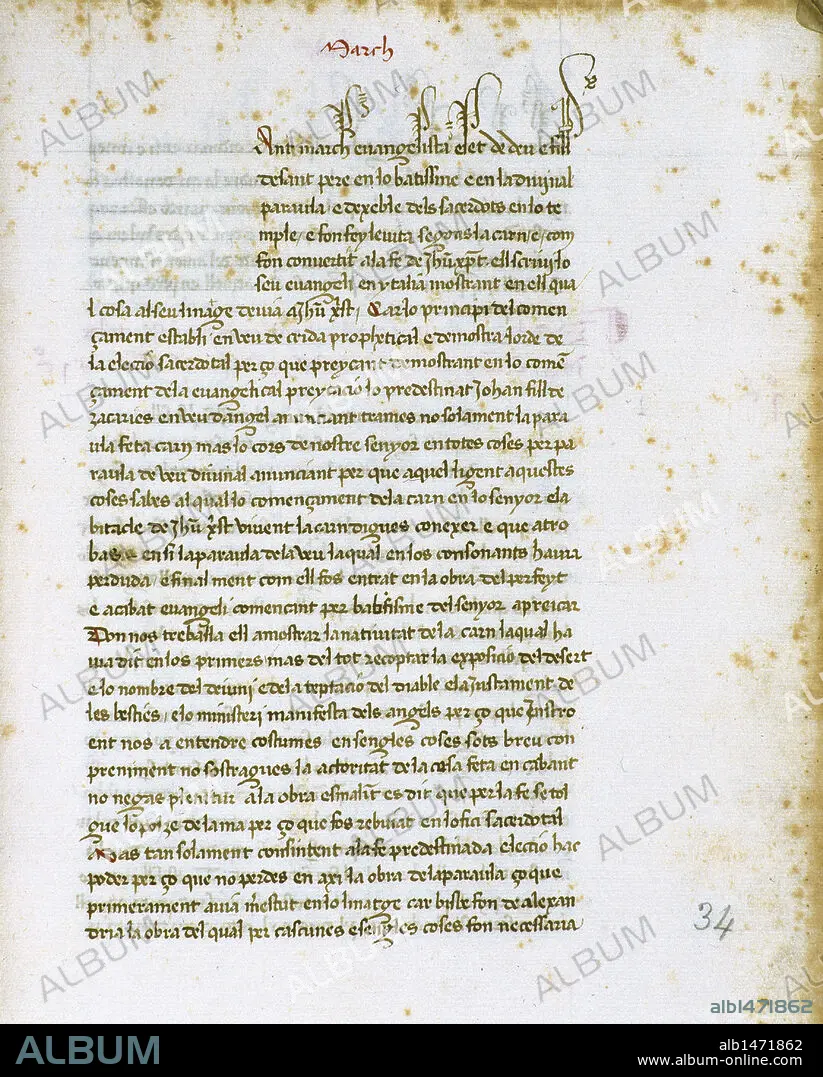 March
Ant march euangelista elet de deu e fill
de sant pere en lo batisme e en la diuinal
paraula e dexeble dels sacerdots en lo te
mple, e fon fey leuita segons la carn, e, com
fon conuertit a la fe de Jhu xpst ell scriui lo
seu euangeli en ytalia mostrant en ell qua
l cosa al seu linatge deuia a Jhu xst, Car lo principi del comen
çament establi en veu de crida prophetical e demostra lorde de
la electio sacerdotal per ço que preycant demostrant en lo comē
çament de la euangelical preycacio lo predestinat Johan fill de
zacaries en veu dangel anunciant trames no solament la para
ula feta carn mas lo cors de nostre senyor en totes coses per pa
raula de veu diuinal anunciant per que aquel ligent aquestes
coses sabes al qual lo començament de la carn en lo senyor e la
bitacle de Jhu xst vinent la carn digues conexer e que atro
bas en si la paraula de la veu la qual en los consonants hauia
perduda, e final ment com ell fos entrat en la obra del perfeyt
e acabat euangeli comencant per babtisme del senyor a preicar
Don nos treballa ell a mostrar la natiuitat de la carn la qual ha
uia dit en los primers mas del tot recoptar la exposicio del desert
e lo nombre del deiuni e de la temptacio del diable e la justament de
les besties, e lo ministeri manifesta dels angels per ço que Instro
ent nos a entendre costumes en sengles coses sots breu con
preniment no sostragues la actoritat de la cosa feta en cabant
no negas a la obra es dit que per la fe se tol
gue lo polze de la ma per ço que fos rebuiat en lofici sacerdotal
Mas tan solament consintent a la fe predestinada electio hac
poder per ço que no perdes en axi la obra de la paraula ço que
primerament auia mestut en lo linatge car bisbe fon de alexan
dria la obra del qual per cascunes e sengles coses fon necessaria
34
ALBUM
alb1471862
ALBUM
alb1471862
www.album-online.com